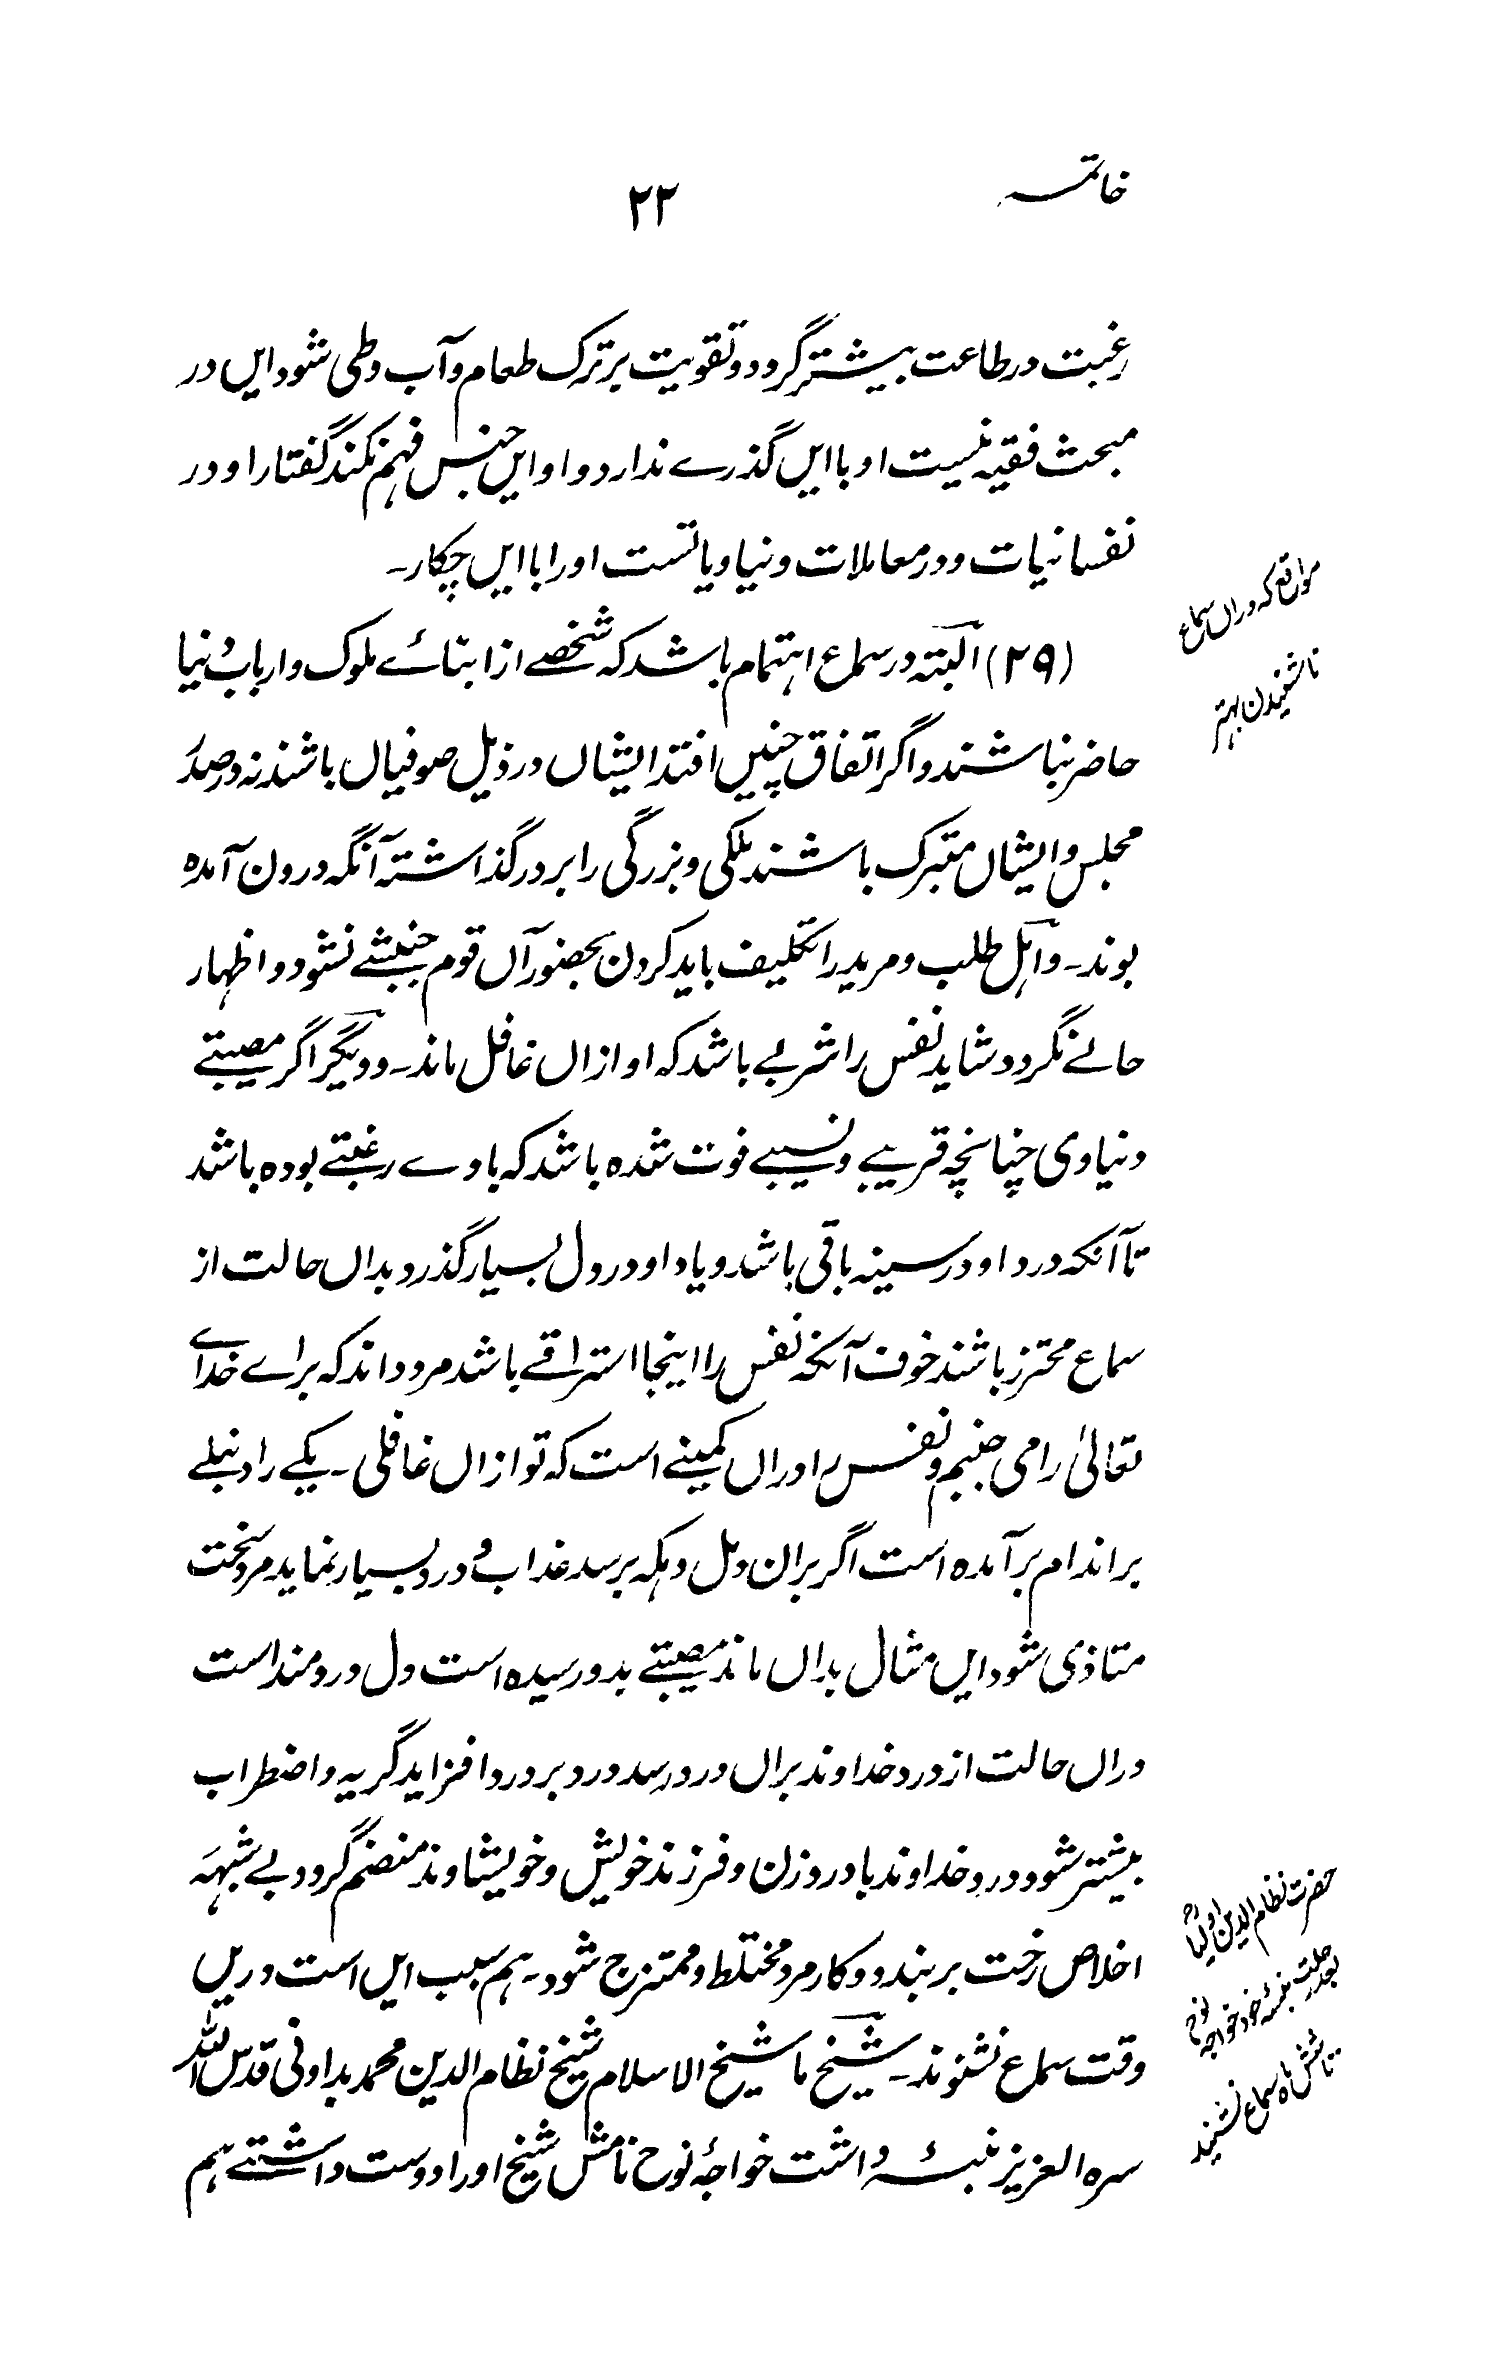 خاتمہ
۲۲
رغبت در طاعت بیشتر گردد و تقویت بر ترک طعام و آب وطی شود ایں در
مبحث فقیہ نیست او با ایں گذرے ندارد و او ایں جنس فہم نکند گفتار او در
نفسانیات و در معاملات دنیا ویاتست او را با ایں چکار۔
مواقع کہ دراں سماع
ناشنیدن بہتر
(۲۹) البتہ در سماع اہتمام باشد کہ شخصے از ابنائے ملوک و ارباب دنیا
حاضر نباشند و اگر اتفاق چنیں افتد ایشاں در ذیل صوفیاں باشند نہ در صدر
مجلس و ایشاں متبرک باشند ملکی و بزرگی را بر در گذاشتہ آنگہ درون آمدہ
بوند۔ و اہل طلب و مرید را تکلیف باید کردن بحضور آں قوم جنبشے نشود و اظہار
حالے نگردد شاید نفس را شربے باشد کہ او ازاں غافل ماند۔ و دیگر اگر مصیبتے
دنیاوی چنانچہ قریبے و نسیبے فوت شدہ باشد کہ باوے رغبتے بودہ باشد
تا آنکہ درد او در سینہ باقی باشد و یاد او در دل بسیار گذرد بداں حالت از
سماع محترز باشند خوف آنکہ نفس را اینجا استراقے باشد مرد داند کہ براے خداے
تعالیٰ را می جنبم و نفس را دراں کمینے است کہ تو ازاں غافلی۔ یکے را دنبلے
بر اندام برآمدہ است اگر بران دمل دہکہ برسد عذاب و درد بسیار نماید مرد سخت
متاذی شود ایں مثال بداں ماند مصیبتے بدو رسیدہ است دل دردمند است
دراں حالت از درد خداوند براں درد رسد درد بر درد افزاید گریہ و اضطراب
بیشتر شود درد خداوند با درد زن و فرزند خویش و خویشاوند منضم گردد بے شبہہ
اخلاص رخت بربندد و کار مرد مختلط و ممتزج شود۔ ہم سبب ایں است دریں
وقت سماع نشنوند۔ شیخ ما شیخ الاسلام شیخ نظام الدین محمد بداونی قدس اللہ
سرہ العزیز نبسۂ داشت خواجۂ نوح نامش شیخ او را دوست داشتے ہم
حضرت نظام الدین اولیاؒ
بعد رحلت نبسۂ خود خواجہ نوح
تا شش ماہ سماع نشنید